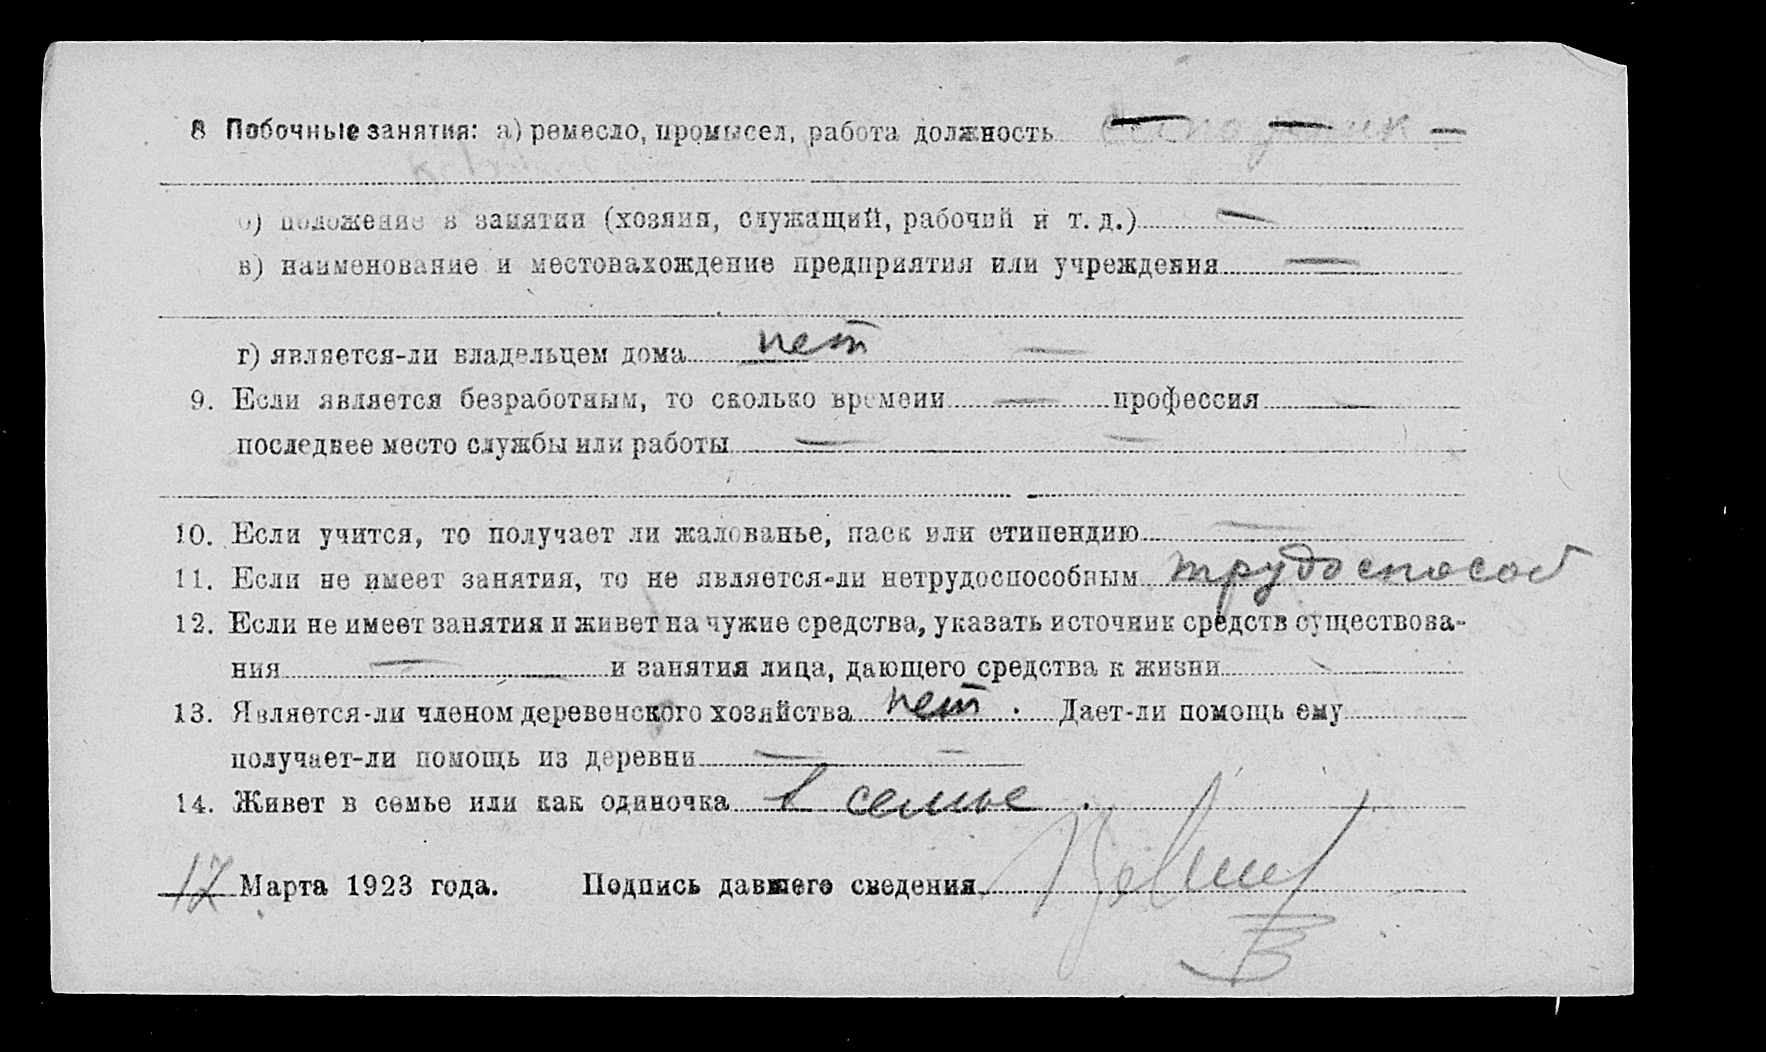 8 Побочные занятия: а) ремесло, промысел, работа должность —
б) положение в занятии (хозяин, служащий, рабочий и т. д.) —
в) наименование и местонахождение предприятия или учреждения —
г) является-ли владельцем дома нет —
9. Если является безработным, то сколько времени — профессия —
последнее место службы или работы — —
10. Если учится, то получает ли жалованье, паек или стипендию —
11. Если не имеет занятия, то не является-ли нетрудоспособным трудоспособ
12. Если не имеет занятия и живет на чужие средства, указать источник средств существова-
ния — и занятия лица, дающего средства к жизни —
13. Является-ли членом деревенского хозяйства нет . Дает-ли помощь ему
получает-ли помощь из деревни — —
14. Живет в семье или как одиночка в семье .
17 Марта 1923 года. Подпись давшего сведения